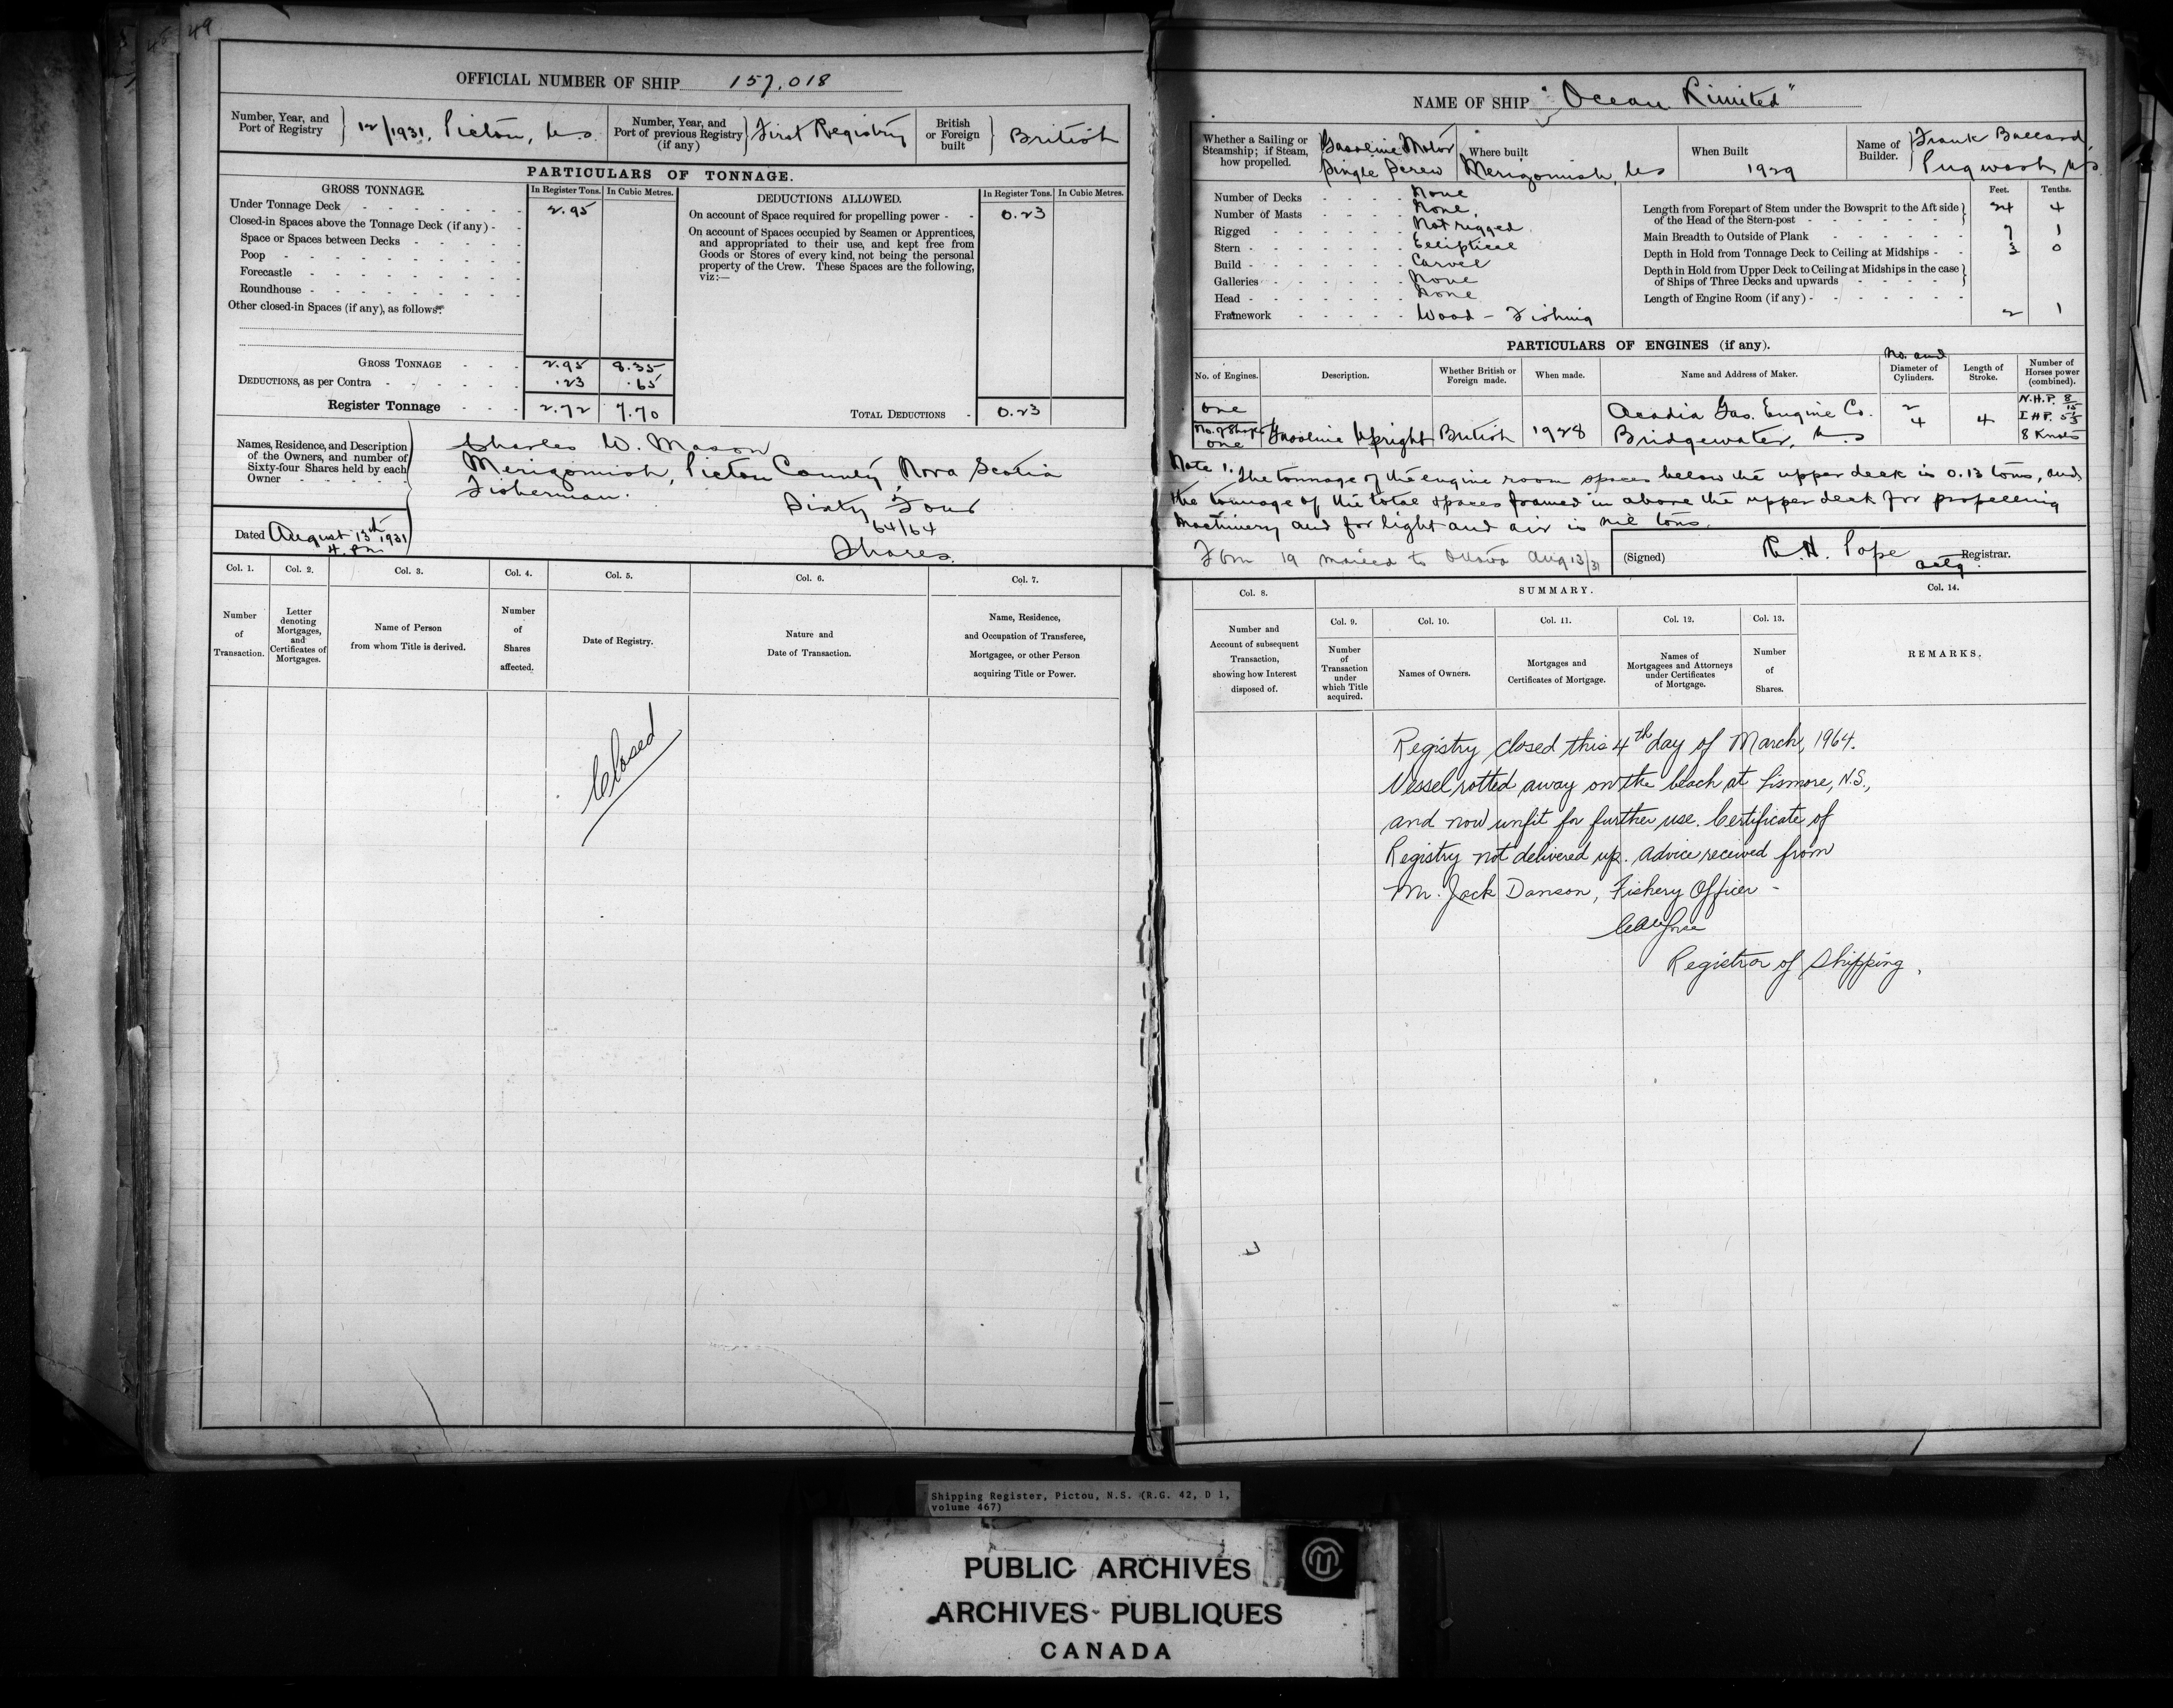 49
OFFICIAL NUMBER OF SHIP 157,018
Number, Year, and Port of Registry } 12/1931, Pictou, N.S.
Number, Year, and Port of previous Registry (if any) } First Registry
British or Foreign built } British
PARTICULARS OF TONNAGE.
GROSS TONNAGE. In Register Tons. In Cubic Metres.
Under Tonnage Deck 2.95
Closed-in Spaces above the Tonnage Deck (if any)
Space or Spaces between Decks
Poop
Forecastle
Roundhouse
Other closed-in Spaces (if any), as follows:
GROSS TONNAGE 2.95 8.35
DEDUCTIONS, as per Contra .23 .65
Register Tonnage 2.72 7.70
DEDUCTIONS ALLOWED. In Register Tons. In Cubic Metres.
On account of Space required for propelling power 0.23
On account of Spaces occupied by Seamen or Apprentices,
and appropriated to their use, and kept free from
Goods or Stores of every kind, not being the personal
property of the Crew. These Spaces are the following,
viz:—
TOTAL DEDUCTIONS 0.23
Names, Residence, and Description
of the Owners, and number of
Sixty-four Shares held by each
Owner
Charles W. Mason
Merigomish, Pictou County, Nova Scotia
Fisherman.
Sixty Four
64/64
Shares.
Dated August 13th 1931
4. PM
Col. 1. Col. 2. Col. 3. Col. 4. Col. 5. Col. 6. Col. 7.
Number of Transaction.
Letter denoting Mortgages, and Certificates of Mortgages.
Name of Person from whom Title is derived.
Number of Shares affected.
Date of Registry.
Nature and Date of Transaction.
Name, Residence, and Occupation of Transferee, Mortgagee, or other Person acquiring Title or Power.
Closed
NAME OF SHIP "Ocean Limited"
Whether a Sailing or Steamship; if Steam, how propelled. Gasoline Motor Single Screw
Where built Merigomish, N.S.
When Built 1929
Name of Builder. } Frank Ballard, Pugwash, N.S.
Number of Decks None
Number of Masts None
Rigged Not rigged
Stern Elliptical
Build Carvel
Galleries None
Head None
Framework Wood - Fishing
Feet. Tenths.
Length from Forepart of Stem under the Bowsprit to the Aft side
of the Head of the Stern-post 24 4
Main Breadth to Outside of Plank 7 1
Depth in Hold from Tonnage Deck to Ceiling at Midships 3 0
Depth in Hold from Upper Deck to Ceiling at Midships in the case
of Ships of Three Decks and upwards
Length of Engine Room (if any) 2 1
PARTICULARS OF ENGINES (if any).
No. of Engines. Description. Whether British or Foreign made. When made. Name and Address of Maker. No. and Diameter of Cylinders. Length of Stroke. Number of Horses power (combined).
one
No. of Shafts
one
Gasoline Upright British 1928
Acadia Gas. Engine Co.
Bridgewater, N.S.
2
4
4
N.H.P.
I H P.
8 Knots
Note 1. The tonnage of the engine room spaces below the upper deck is 0.13 tons, and
the tonnage of the total spaces framed in above the upper deck for propelling
Machinery and for light and air is nil tons.
Form 19 mailed to Ottawa Aug 13/31
(Signed) R. H. Pope
actg. Registrar.
Col. 8. SUMMARY. Col. 14.
Col. 9. Col. 10. Col. 11. Col. 12. Col. 13.
Number and Account of subsequent Transaction, showing how Interest disposed of.
Number of Transaction under which Title acquired.
Names of Owners.
Mortgages and Certificates of Mortgage.
Names of Mortgagees and Attorneys under Certificates of Mortgage.
Number of Shares.
REMARKS.
Registry closed this 4th day of March, 1964.
Vessel rotted away on the beach at Lismore, N.S.,
and now unfit for further use. Certificate of
Registry not delivered up. Advice received from
Mr. Jack Danson, Fishery Officer -
Registrar of Shipping.
Shipping Register, Pictou, N.S. (R.G. 42, D 1,
volume 467)
PUBLIC ARCHIVES
ARCHIVES PUBLIQUES
CANADA